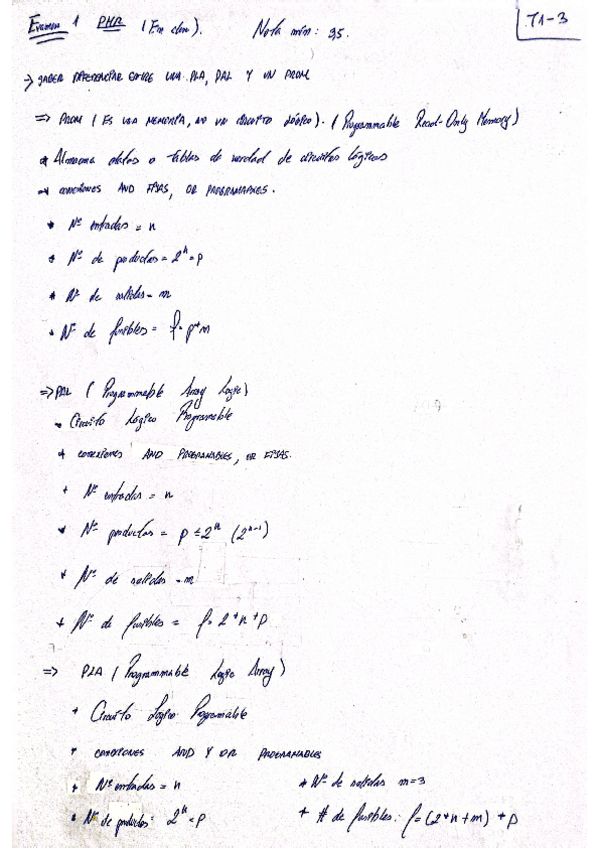 Examen 1 PHR (En clase). Nota mín: 3,5. T1-3
→ SABER DIFERENCIAR ENTRE UNA PLA, PAL Y UN PROM
⇒ PROM (ES UNA MEMORIA, NO UN CIRCUITO LÓGICO). (Programmable Read-Only Memory)
* Almacena datos o tablas de verdad de circuitos lógicos
→ CONEXIONES AND FIJAS, OR PROGRAMABLES.
* Nº entradas = n
* Nº de productos = 2^n = p
* Nº de salidas = m
* Nº de fusibles = f = p*m
⇒ PAL (Programmable Array Logic)
* Circuito Lógico Programable
* CONEXIONES AND PROGRAMABLES, OR FIJAS.
+ Nº entradas = n
* Nº productos = p ≤ 2^n (2^n-1)
* Nº de salidas = m
+ Nº de fusibles = f = 2*n*p
⇒ PLA (Programmable Logic Array)
* Circuito Lógico Programable
* CONEXIONES AND Y OR PROGRAMABLES
* Nº entradas = n * Nº de salidas m=3
* Nº de productos: 2^n = p + # de fusibles: f=(2*n+m) * p